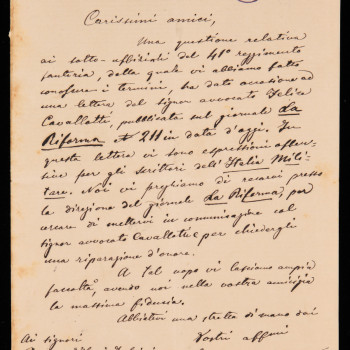 Carissimi amici,
Una questione relativa
ai sotto-uffiziali del 41° reggimento
fanteria, della quale vi abbiamo fatto
conoscere i termini, ha dato occasione ad
una lettera del signor avvocato Felice
Cavallotti, pubblicata sul giornale La
Riforma N° 211 in data d'oggi. In
questa lettera vi sono espressioni offen-
sive per gli scrittori dell'Italia Mili-
tare. Noi vi preghiamo di recarvi presso
la direzione del giornale La Riforma, per
cercare di mettervi in comunicazione col
signor avvocato Cavallotti e per chiedergli
una riparazione d'onore.
A tal uopo vi lasciamo ampia
facoltà, avendo noi nella vostra amicizia
la massima fiducia.
Abbiatevi una stretta di mano dai
Vostri affmi
Ai signori